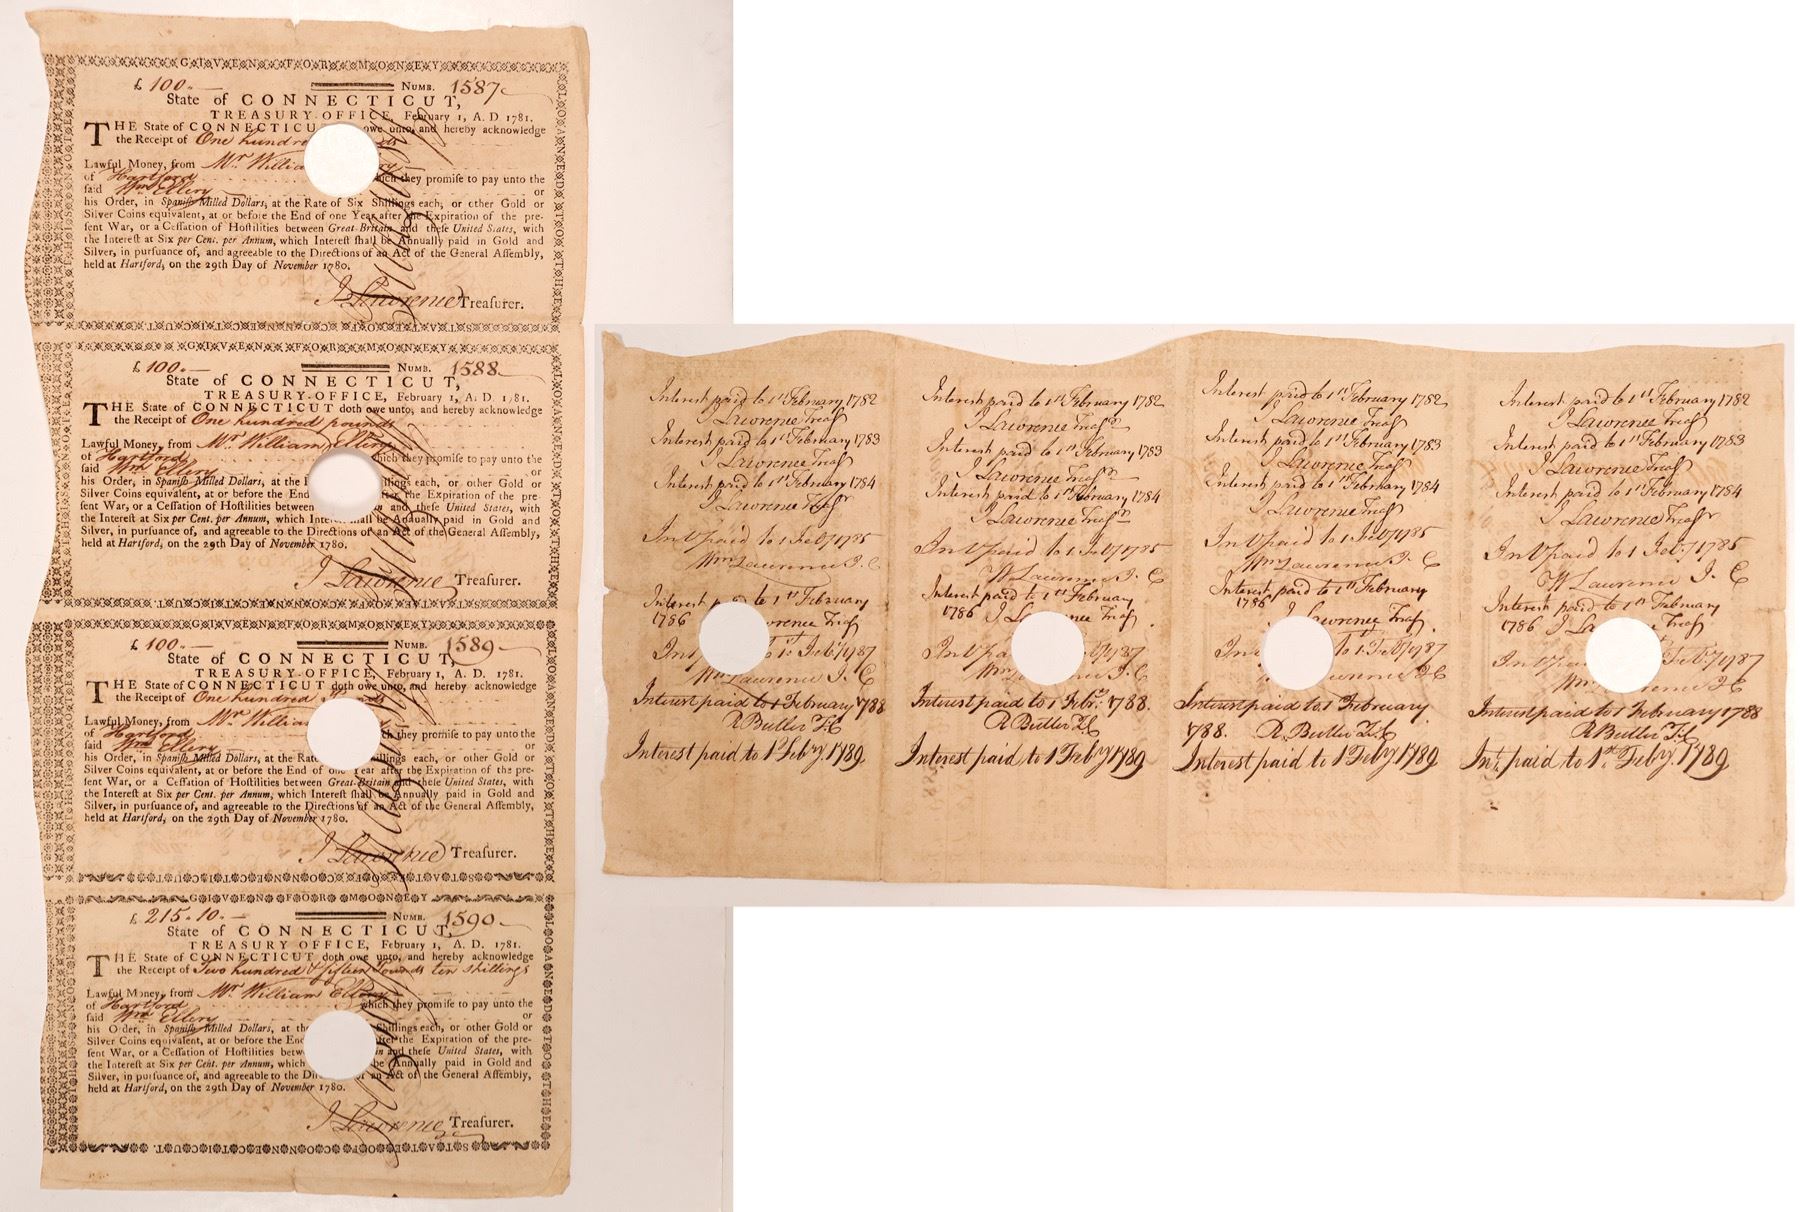 GIVEN FOR MONEY
LOANED TO THE
STATE OF CONNECTICUT.
£ 100.. — NUMB. 1587
State of CONNECTICUT,
TREASURY-OFFICE, February 1, A. D 1781.
THE State of CONNECTICU owe unto, and hereby acknowledge
the Receipt of One hundre
Lawful Money, from Mr. Willia
of Hartford which they promise to pay unto the
said Wm Ellery or
his Order, in Spanish Milled Dollars, at the Rate of Six Shillings each, or other Gold or
Silver Coins equivalent, at or before the End of one Year after the Expiration of the pre-
sent War, or a Cessation of Hostilities between Great-Britain and these United States, with
the Interest at Six per Cent. per Annum, which Interest shall be Annually paid in Gold and
Silver, in pursuance of, and agreeable to the Directions of an Act of the General Assembly,
held at Hartford, on the 29th Day of November 1780.
J Lawrence Treasurer.
GIVEN FOR MONEY
LOANED TO THE
STATE OF CONNECTICUT.
£ 100.. — NUMB. 1588
State of CONNECTICUT,
TREASURY-OFFICE, February 1, A. D. 1781.
THE State of CONNECTICUT doth owe unto, and hereby acknowledge
the Receipt of One hundred pounds
Lawful Money, from Mr. William Ellery
of Hartford which they promise to pay unto the
said Wm Ellery or
his Order, in Spanish Milled Dollars, at the illings each, or other Gold or
Silver Coins equivalent, at or before the End after the Expiration of the pre-
sent War, or a Cessation of Hostilities between in and these United States, with
the Interest at Six per Cent. per Annum, which Inte shall be Annually paid in Gold and
Silver, in pursuance of, and agreeable to the Directions of an Act of the General Assembly,
held at Hartford, on the 29th Day of November 1780.
J Lawrence Treasurer.
GIVEN FOR MONEY
LOANED TO THE
STATE OF CONNECTICUT.
£ 100.. — NUMB. 1589
State of CONNECTICUT,
TREASURY-OFFICE, February 1, A. D. 1781.
THE State of CONNECTICUT doth owe unto, and hereby acknowledge
the Receipt of One hundred Pounds
Lawful Money, from Mr. William
of Hartford ch they promise to pay unto the
said Wm Ellery or
his Order, in Spanish Milled Dollars, at the Rat illings each, or other Gold or
Silver Coins equivalent, at or before the End of one Year after the Expiration of the pre-
sent War, or a Cessation of Hostilities between Great-Britain and these United States, with
the Interest at Six per Cent. per Annum, which Interest shall be Annually paid in Gold and
Silver, in pursuance of, and agreeable to the Directions of an Act of the General Assembly,
held at Hartford, on the 29th Day of November 1780.
J Lawrence Treasurer.
GIVEN FOR MONEY
LOANED TO THE
STATE OF CONNECTICUT.
£ 215.. 10.. — NUMB. 1590
State of CONNECTICUT,
TREASURY OFFICE, February 1, A. D. 1781.
THE State of CONNECTICUT doth owe unto, and hereby acknowledge
the Receipt of Two hundred & fifteen Pounds ten shillings
Lawful Money, from Mr. William Ellery
of Hartford which they promise to pay unto the
said Wm Ellery or
his Order, in Spanish Milled Dollars, at th Shillings each, or other Gold or
Silver Coins equivalent, at or before the End after the Expiration of the pre-
sent War, or a Cessation of Hostilities betw in and these United States, with
the Interest at Six per Cent. per Annum, which be Annually paid in Gold and
Silver, in pursuance of, and agreeable to the Di of an Act of the General Assembly,
held at Hartford, on the 29th Day of November 1780.
J Lawrence Treasurer.
Interest paid to 1st February 1782
J Lawrence Treasr
Interest paid to 1st February 1783
J Lawrence Treasr
Interest paid to 1st February 1784
J Lawrence Treasr
Int paid to 1 Feby 1785
Wm Lawrence J. C
Interest p to 1st February
1786 wrence Treasr
Int to 1st Feby 1787
Wm Lawrence J. C
Interest paid to 1 February 1788
R Butler J C
Interest paid to 1st Feby 1789
Interest paid to 1st February 1782
J Lawrence Treasr
Interest paid to 1st February 1783
J Lawrence Treasr
Interest paid to 1st February 1784
J Lawrence Treasr
Int paid to 1 Feby 1785
W Lawrence J. C
Interest paid to 1st February
1786 J L ence Treasr
Int pa by 1787
Wm rence J. C
Interest paid to 1 Febr. 1788.
R Butler J C
Interest paid to 1 Feby 1789
Interest paid to 1st February 1782
J Lawrence Treasr
Interest paid to 1st February 1783
J Lawrence Treasr
Interest paid to 1st February 1784
J Lawrence Treasr
Int paid to 1 Feby 1785
Wm Lawrence J. C
Interest paid to 1st February
1786 J Lawrence Treasr
Int to 1 Feby 1787
wrence J C
Interest paid to 1 February
1788. R Butler J C
Interest paid to 1 Feby 1789
Interest paid to 1st February 1782
J Lawrence Treasr
Interest paid to 1st February 1783
J Lawrence Treasr
Interest paid to 1st February 1784
J Lawrence Treasr
Int paid to 1 Feby 1785
W Lawrence J. C
Interest paid to 1st February
1786 J La Treasr
Int pai Feby 1787
Wm rence J C
Interest paid to 1 February 1788
R Butler J C
Int. paid to 1st Feby. 1789